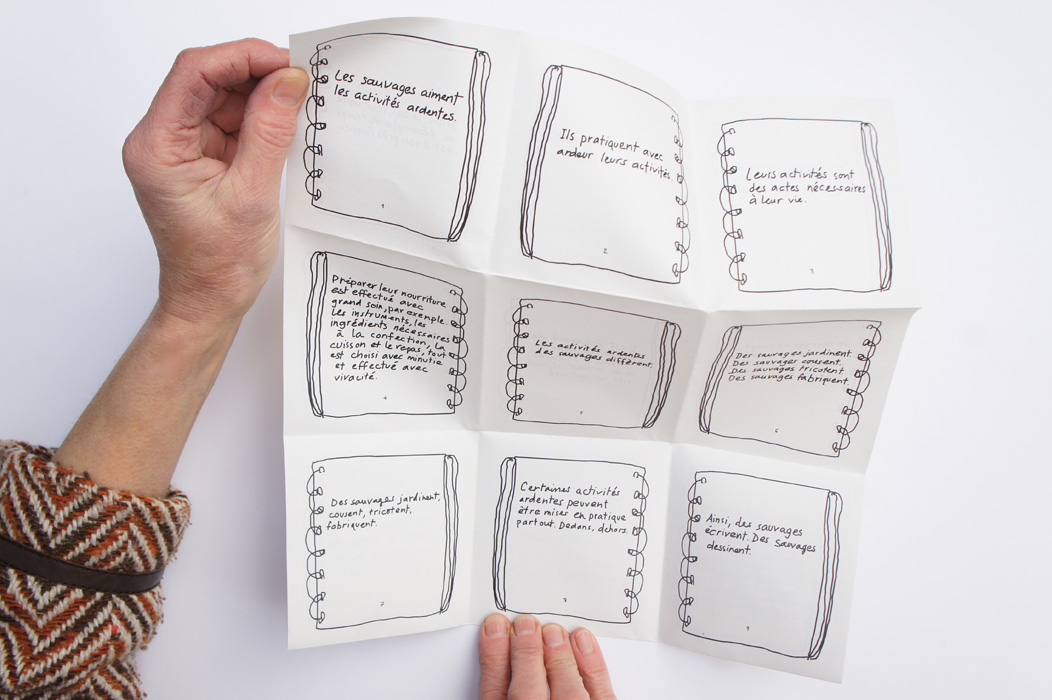 Les sauvages aiment
les activités ardentes.
1
Ils pratiquent avec
ardeur leurs activités.
2
Leurs activités sont
des actes nécessaires
à leur vie.
3
Préparer leur nourriture
est effectué avec
grand soin, par exemple.
Les instruments, les
ingrédients nécessaires
à la confection, la
cuisson et le repas, tout
est choisi avec minutie
et effectué avec
vivacité.
4
Les activités ardentes
des sauvages diffèrent.
5
Des sauvages jardinent.
Des sauvages cousent.
Des sauvages tricotent.
Des sauvages fabriquent.
6
Des sauvages jardinent,
cousent, tricotent,
fabriquent.
7
Certaines activités
ardentes peuvent
être mises en pratique
partout. Dedans, dehors.
Ainsi, des sauvages
écrivent. Des sauvages
dessinent.
9